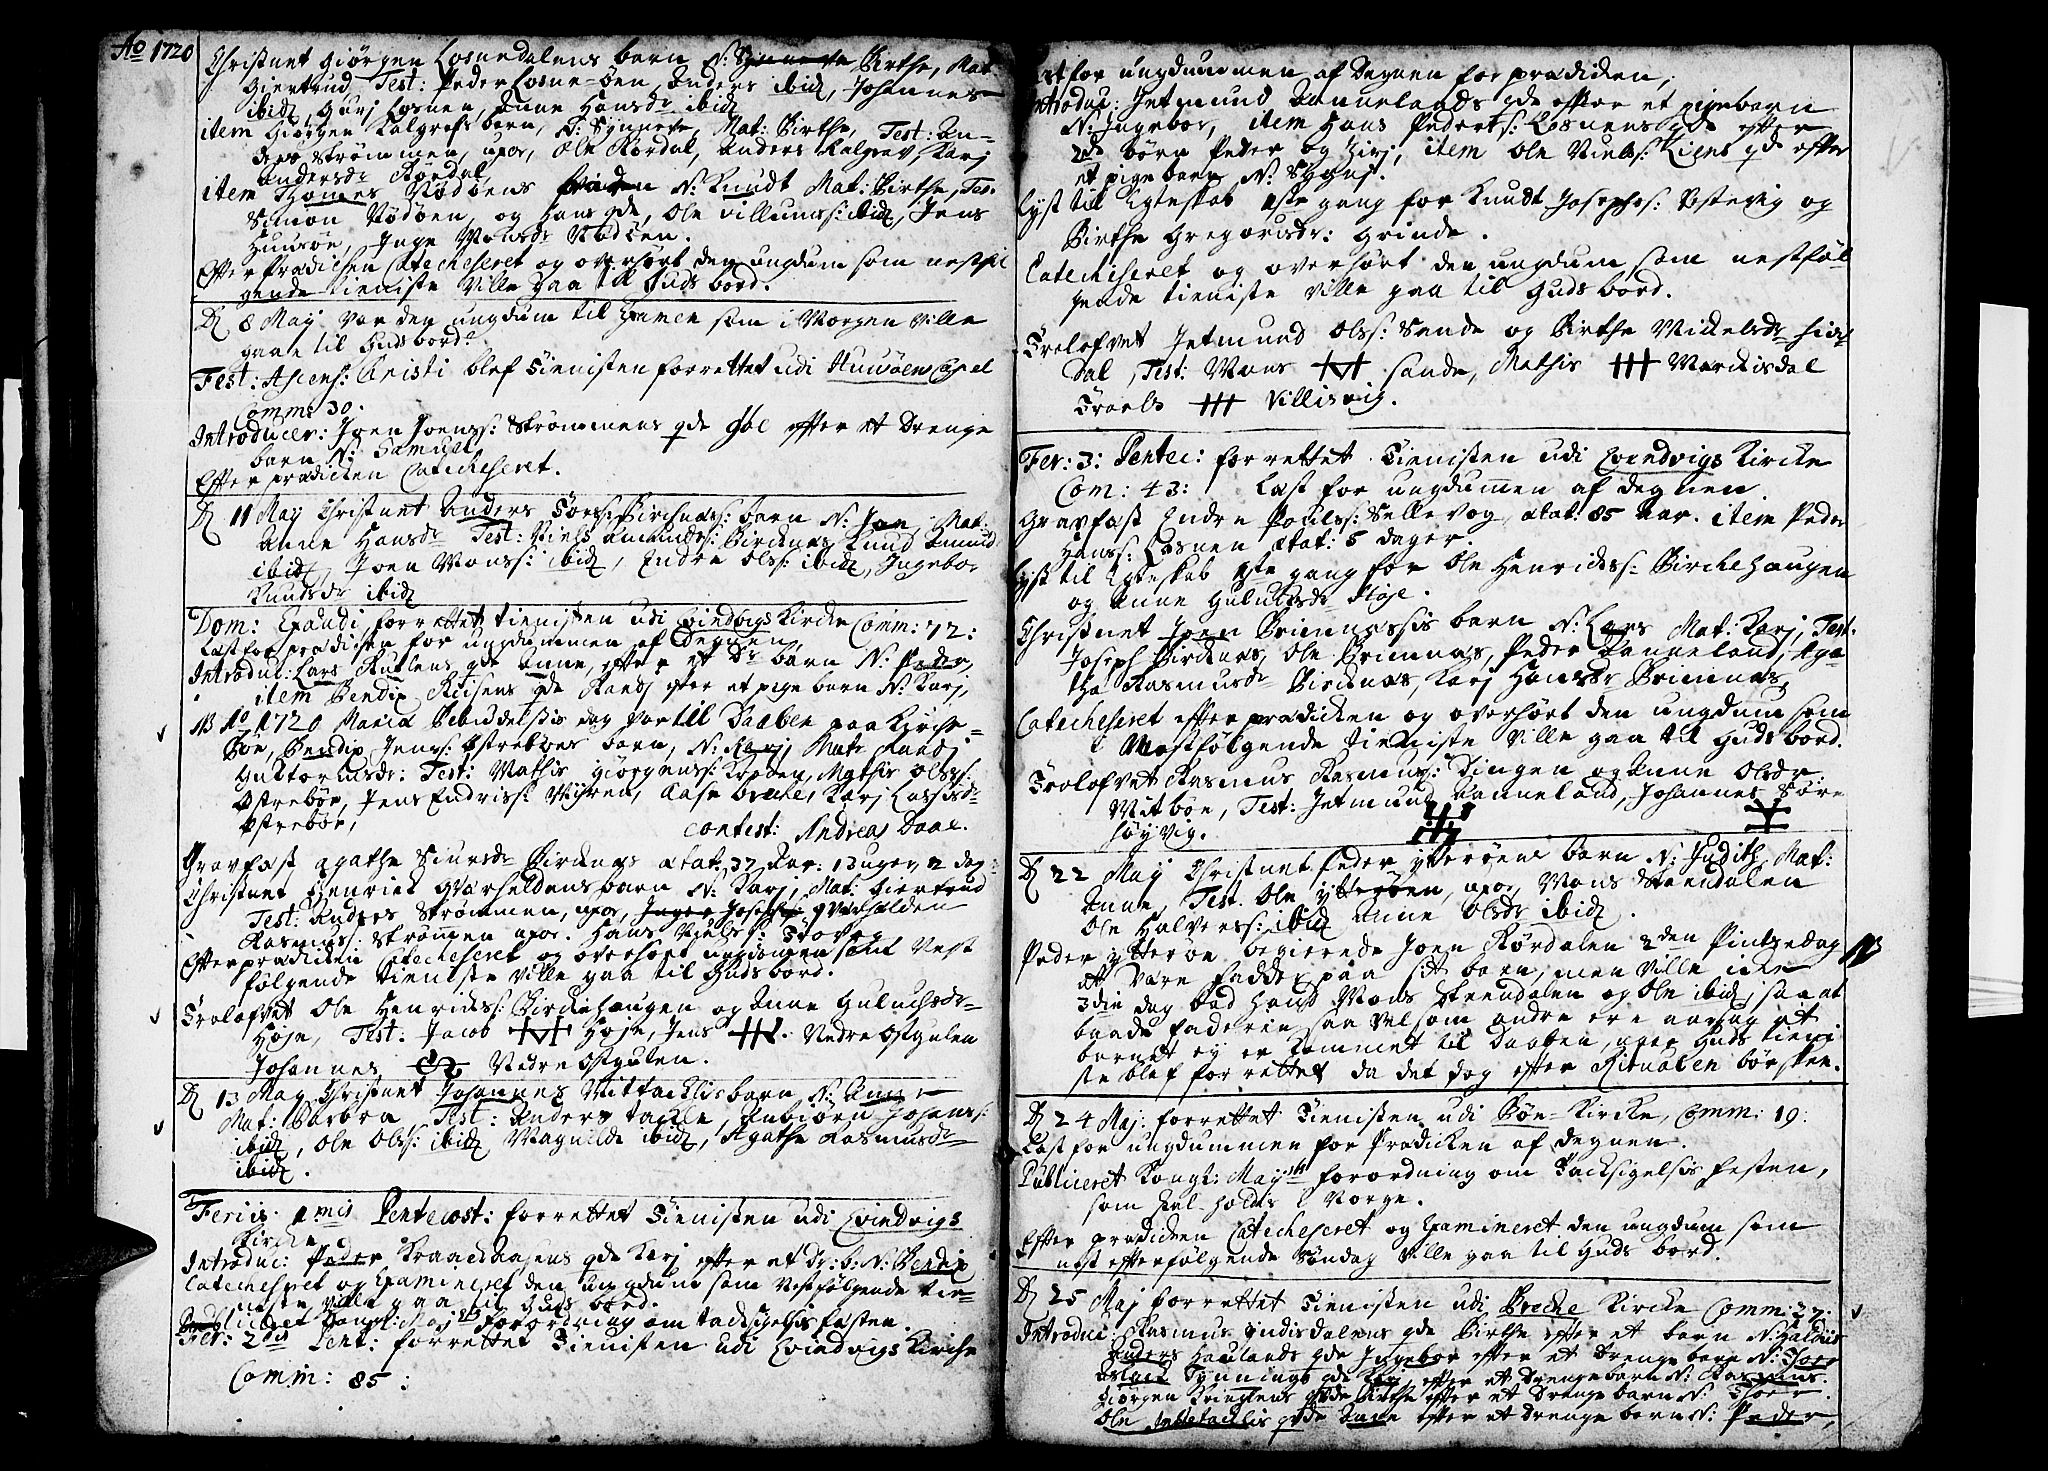 Ao 1720
Christnet Giörgen Losnedalens barn N: Synneve Birthe, Mat:
Giertrud, Test: Peder Losne-Den Anders ibid, Johannes
ibid, Gurj Losnen, Anne Hansdr ibid
item Giörgen Kalgrafs barn, N: Synneve, Mat: Birthe, Test: An-
ders Strömmen, uxor, Ole Rördal, Anders Kalgrav, Karj
Andersdr Rördal,
item Thomes Nödöens N: Knudt Mat: Birthe, Tes.
Simon Nödöen, og Hans qde, Ole Villumss: ibid, Jens
Husöe, Inge Monsdr Nödöen.
Efter Prædichen Catecheseret og overhört den ungdum som nestföl
gende tieniste Ville Gaa til Guds bord.
D 8 May Var den ungdum til Examen som i Morgen Ville
gaae til Guds bord.
Fest: Ascens: Christi blef Tienisten forrettet udi Huusöens Capel
Comm: 30.
Introducer: Joen Joenss: Strömmens qde efter et Drenge
barn N: Samuel,
Efter prædicken Catecheseret.
D 11 May Christnet Anders Birchnæs: barn N: Joen, Mat:
Anne Hansdr Test: Niels Amundss: Birchnæs Knud Amund
ibid, Joen Monss: ibid, Endre Olss: ibid, Ingebor
Knudsdr ibid
Dom: Exaudi forrettet tienisten udi Evindvigs Kircke Comm: 72:
Læst for prædicken for ungdummen af Degnen
Introdu: Lars Rutlens qde Anne, efter et Dr börn N: Peder,
item Bendix Risens qde Randj efter et pige barn N: Karj,
NB Ao 1720 Mariæ Bebudelssis dag var til Daaben paa Kirche-
Böe, Bendix Jenss: Östreböes barn, N: Karj Mat: Randj
Guttormsdr: Test: Mathis Giörgenss: Mathis Olss:
Östreböe, Jens Endriss: Karj Lassisdr
Östreböe,
contest: Andreas Daae.
Gravfæst Agathe Siursdr Birchnæs ætat: 37 Aar: 13 uger, 2 dag:
Christnet Henrick Qvarheldens barn N: Karj, Mat: Giertrud
Test: Anders Strömmen, uxor, Inger Qvarhelden
Rasmus: Strömmen uxor. Hans Nielss:
Efter prædicken Catecheseret og overhört ungdommen som Nest
fölgende tieniste Ville gaa til Guds bord.
Trolofvet Ole Henrickss: Birckehaugen og Anne Guluchsdr-
Höje, Test: Jacob Höje, Jens Nedre Ostgulen
Johannes Nedre Ostgulen.
D 13 May Christnet Johannes Mittacklis barn N: Anne
Mat: Barbra Test: Anders Tackle, Anbiörn Johanss:
ibid, Ole Olss: ibid Magnilde ibid, Agathe Rasmusdr
ibid.
Feriis 1mis Pentecost: forrettet Tienisten udi Evindvigs
Kircke
Introduc: Peder Kraackaasens qde Karj efter et Dr: b: N: Bendix
Catecheseret og Examineret den ungdum som Nestfölgende tie-
niste ville gaa til Guds bord.
Publiceret Kongl: Mayts forordning om tacksigelsis festen.
Fer: 2dis Pent: forrettet Tienisten udi Evindvigs Kirche
Comm: 85:
Læst for ungdummen af Degnen for prædicken,
Introduc: Jetmund Annelands qde efter et pigebarn
N: Ingebor, item Hans Pederss: Losnens qde efter
2de börn Peder og Siri, item Ole Nielss: Liens qde efter
et pige barn N: Sygni.
Lyst til Egteskab 1ste gang for Knudt Josephss: Östevig og
Birthe Gregoriidr: Grinde.
Catecheseret og overhört den ungdum som nestföl-
gende tieniste Ville gaa til Guds bord.
Trolofvet Jetmund Olss: Sande og Birthe Mickelsdr
Dal, Test: Mons sande, Mathis
Troels Villisvig.
Fer: 3: Pentec: forrettet Tienisten udi Evindvigs Kircke
Com: 43: Læst for ungdummen af degnen.
Gravfæst Endre Poulss: Sellevog, ætat: 85 Aar. item Peder
Hanss: Losnen ætat: 5 dager.
Lyst til Egteskab 1ste gang for Ole Henrickss: Birckehaugen
og Anne Guluksdr Höje.
Christnet Joen Brimnæssis barn N: Lars Mat: Karj, Test:
Joseph Birchnæs, Ole Brimnæs, Peder Anneland, Aga-
tha Rasmusdr Birchnæs, Karj Hansdr Brimnæs,
Catecheseret efter prædicken og overhört den ungdum som
i Nestfölgende tieniste Ville gaa til Guds bord.
Trolofvet Rasmus Rasmuss: Dingen og Anne Olsdr:
Mitböe, Test: Jetmund Anneland, Johannes Söre
höyvig.
D 22 May Christnet Peder ytteröens barn N: Judith, Mat:
Anne, Test. Ole ytteröen, uxor, Mons Steendalen
Ole Halverss: ibid Anne Olsdr ibid.
Peder ytteröe begierede Joen Rördalen 2den Pintzedag NB
at Være fadder paa sit barn, men Ville icke
3die dag bad hand Mons Steendalen og Ole ibid, saa at
baade faderen saa Vel som andre ere aarsag at
barnet ey er kommet til Daaben, naar Guds tieni
ste blef forrettet da det dog efter Ritualen börskee.
D 24 Maj: forrettet Tienisten udi Böe-Kircke, Comm: 19:
Læst for ungdummen for Prædicken af degnen.
Publiceret Kongl: Mayts forordning om Tacksigelsis festen,
som skal holdis i Norge.
Efter prædicken Catecheseret og Examineret den ungdum som
nest efterfölgende Söndag Ville gaa til Guds bord.
D 25 Maj forrettet Tienisten udi Brecke Kircke Comm: 27:
Introduc: Rasmus Indisdalens qde Birthe efter et barn N:
Anders Haulands qde Ingebor efter et Drenge barn N:
Aslack Tynnings qde efter et Drenge barn N: Rasmus.
Giörgen qde Birthe efter et Drenge barn N:
Ole qde Anne efter et Drenge barn N: Peder,